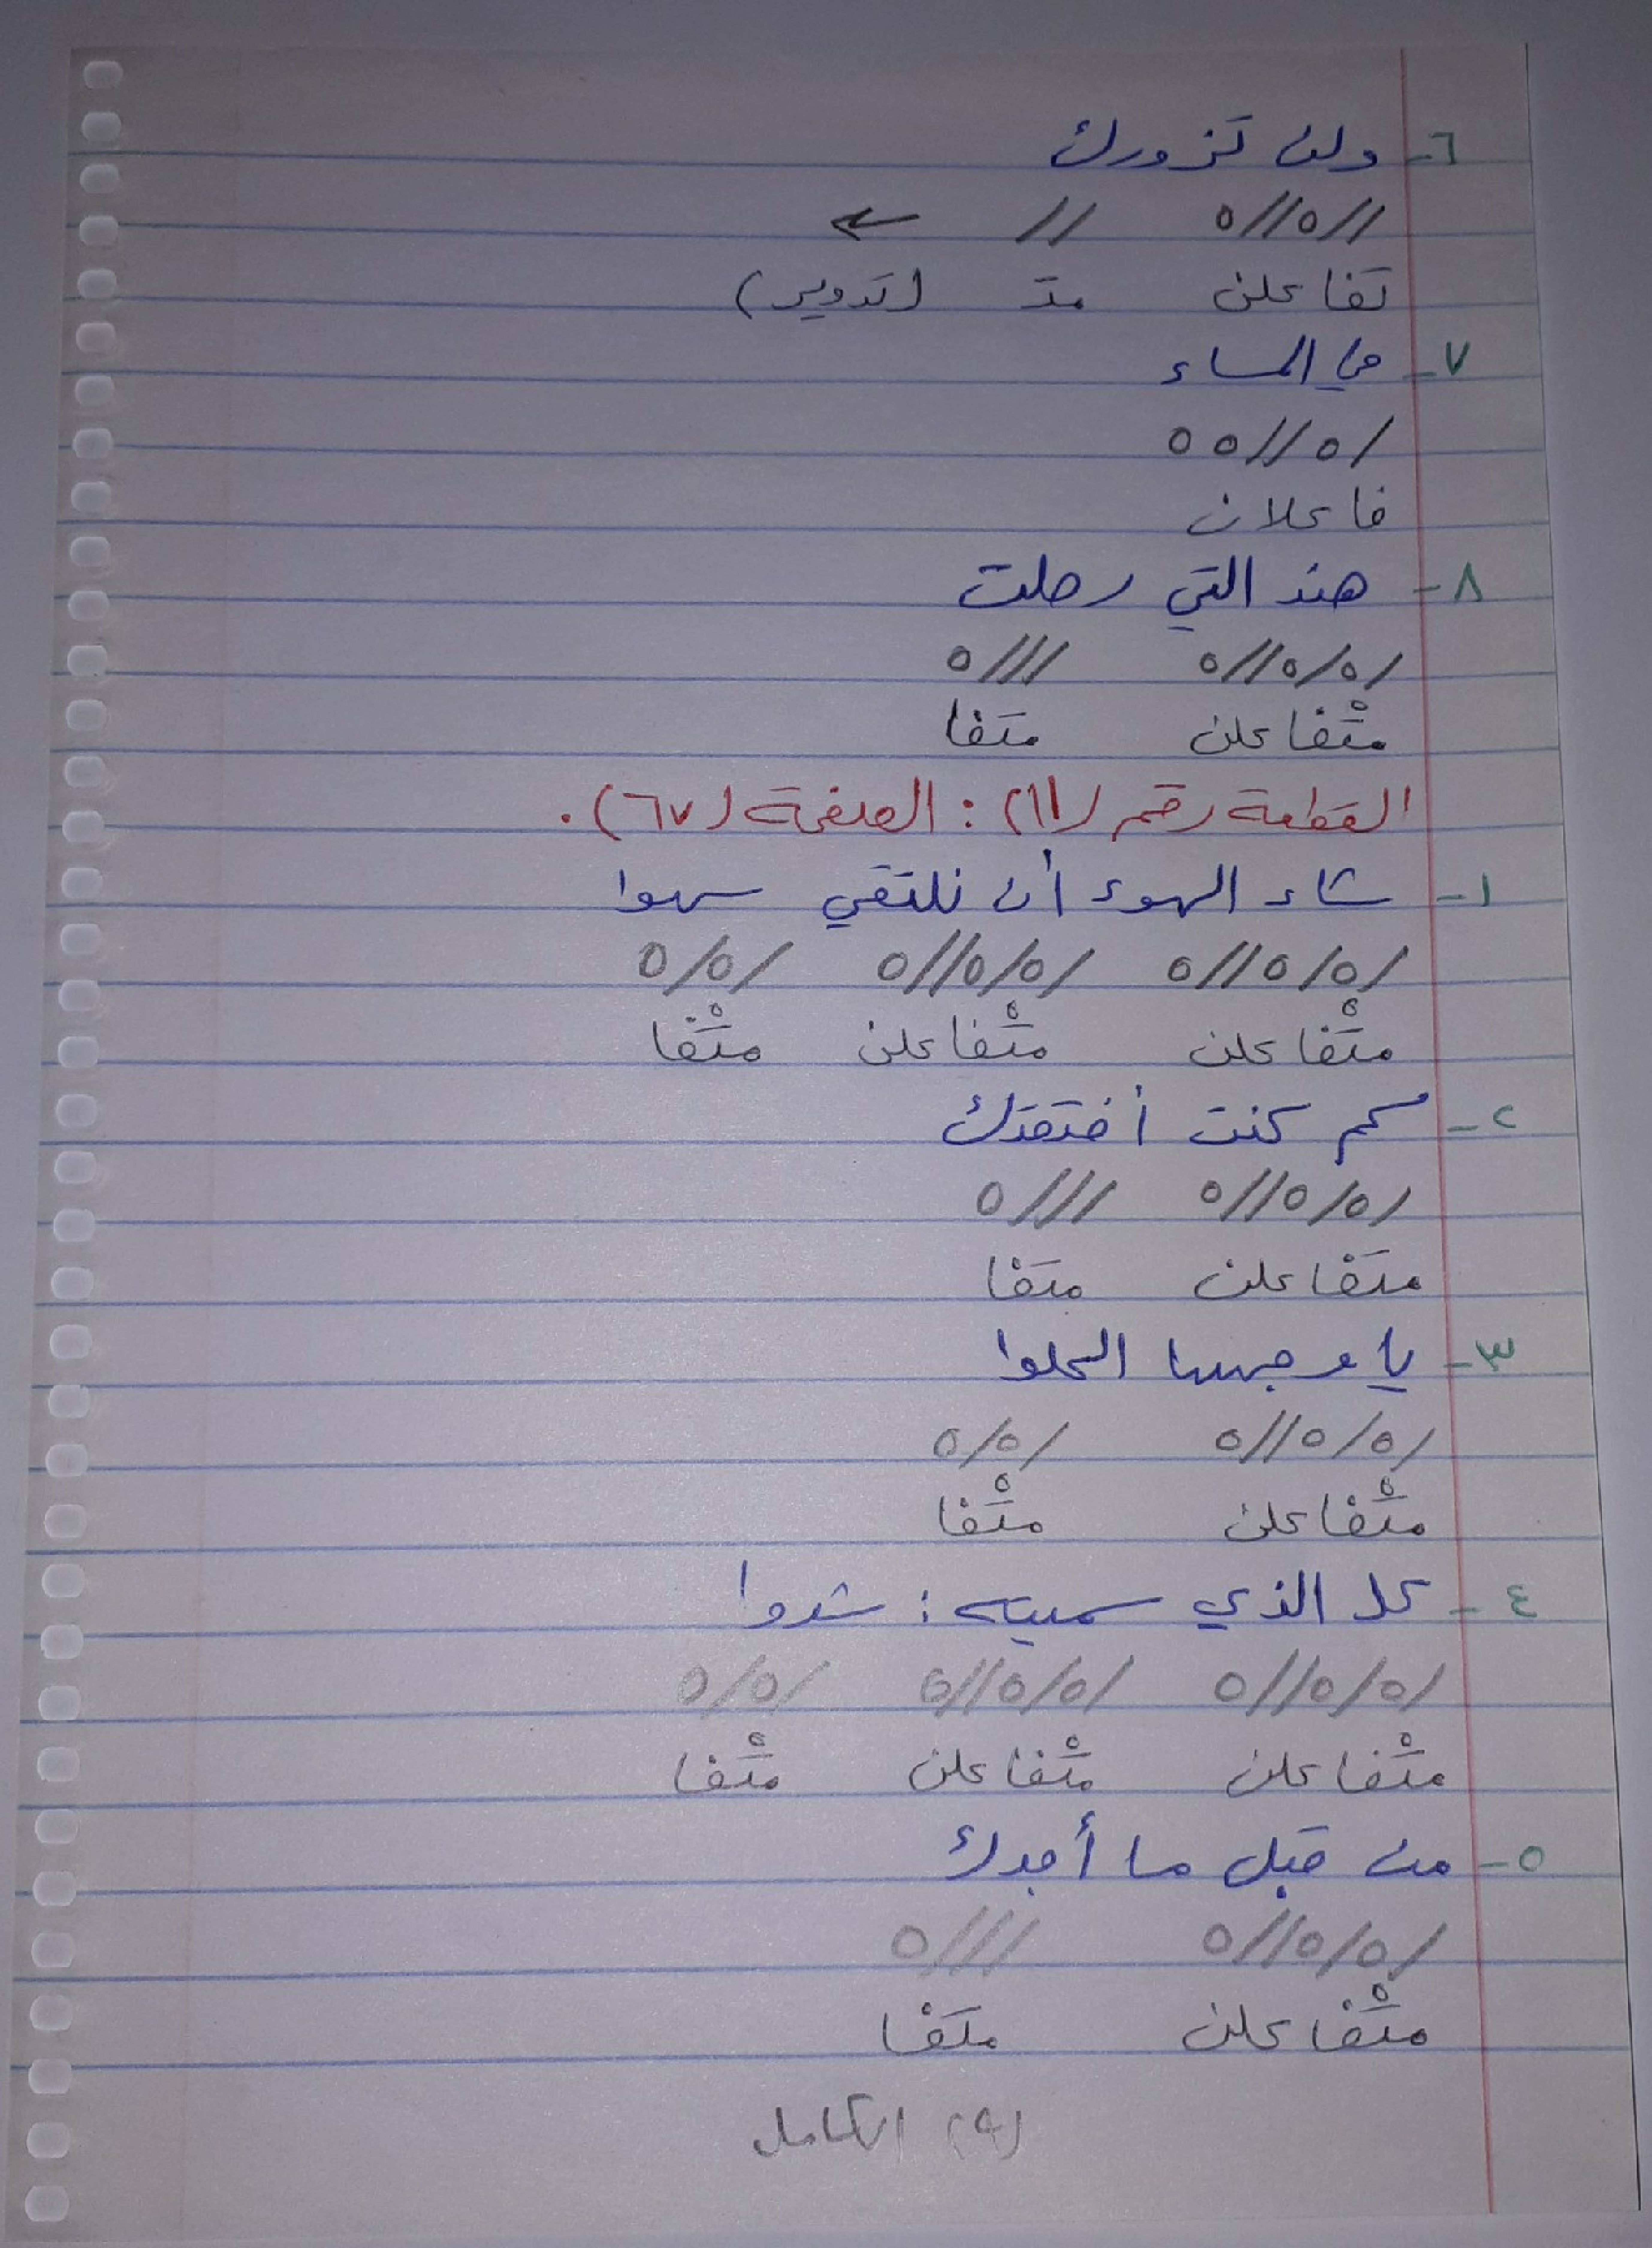 ٦- ولن تزورك
//٥//٥ // ←
تفاعلن مت (تدوير)
٧- في المساء
/٥//٥٥
فاعلان
٨- هند التي رحلت
/٥/٥//٥ ///٥
متْفاعلن متفا
القطعة رقم (١١): الصفحة (٦٧).
١- شاء الهوى أن نلتقي سهوا
/٥/٥//٥ /٥/٥//٥ /٥/٥
متْفاعلن متْفاعلن متْفا
٢- كم كنت أفتقدك
/٥/٥//٥ ///٥
متفاعلن متفا
٣- يا وجهها الحلوا
/٥/٥//٥ /٥/٥
متْفاعلن متْفا
٤- كل الذي سميته: شدوا
/٥/٥//٥ /٥/٥//٥ /٥/٥
متْفاعلن متْفاعلن متْفا
٥- من قبل ما أجدك
/٥/٥//٥ ///٥
متْفاعلن متفا
(٩) الكامل